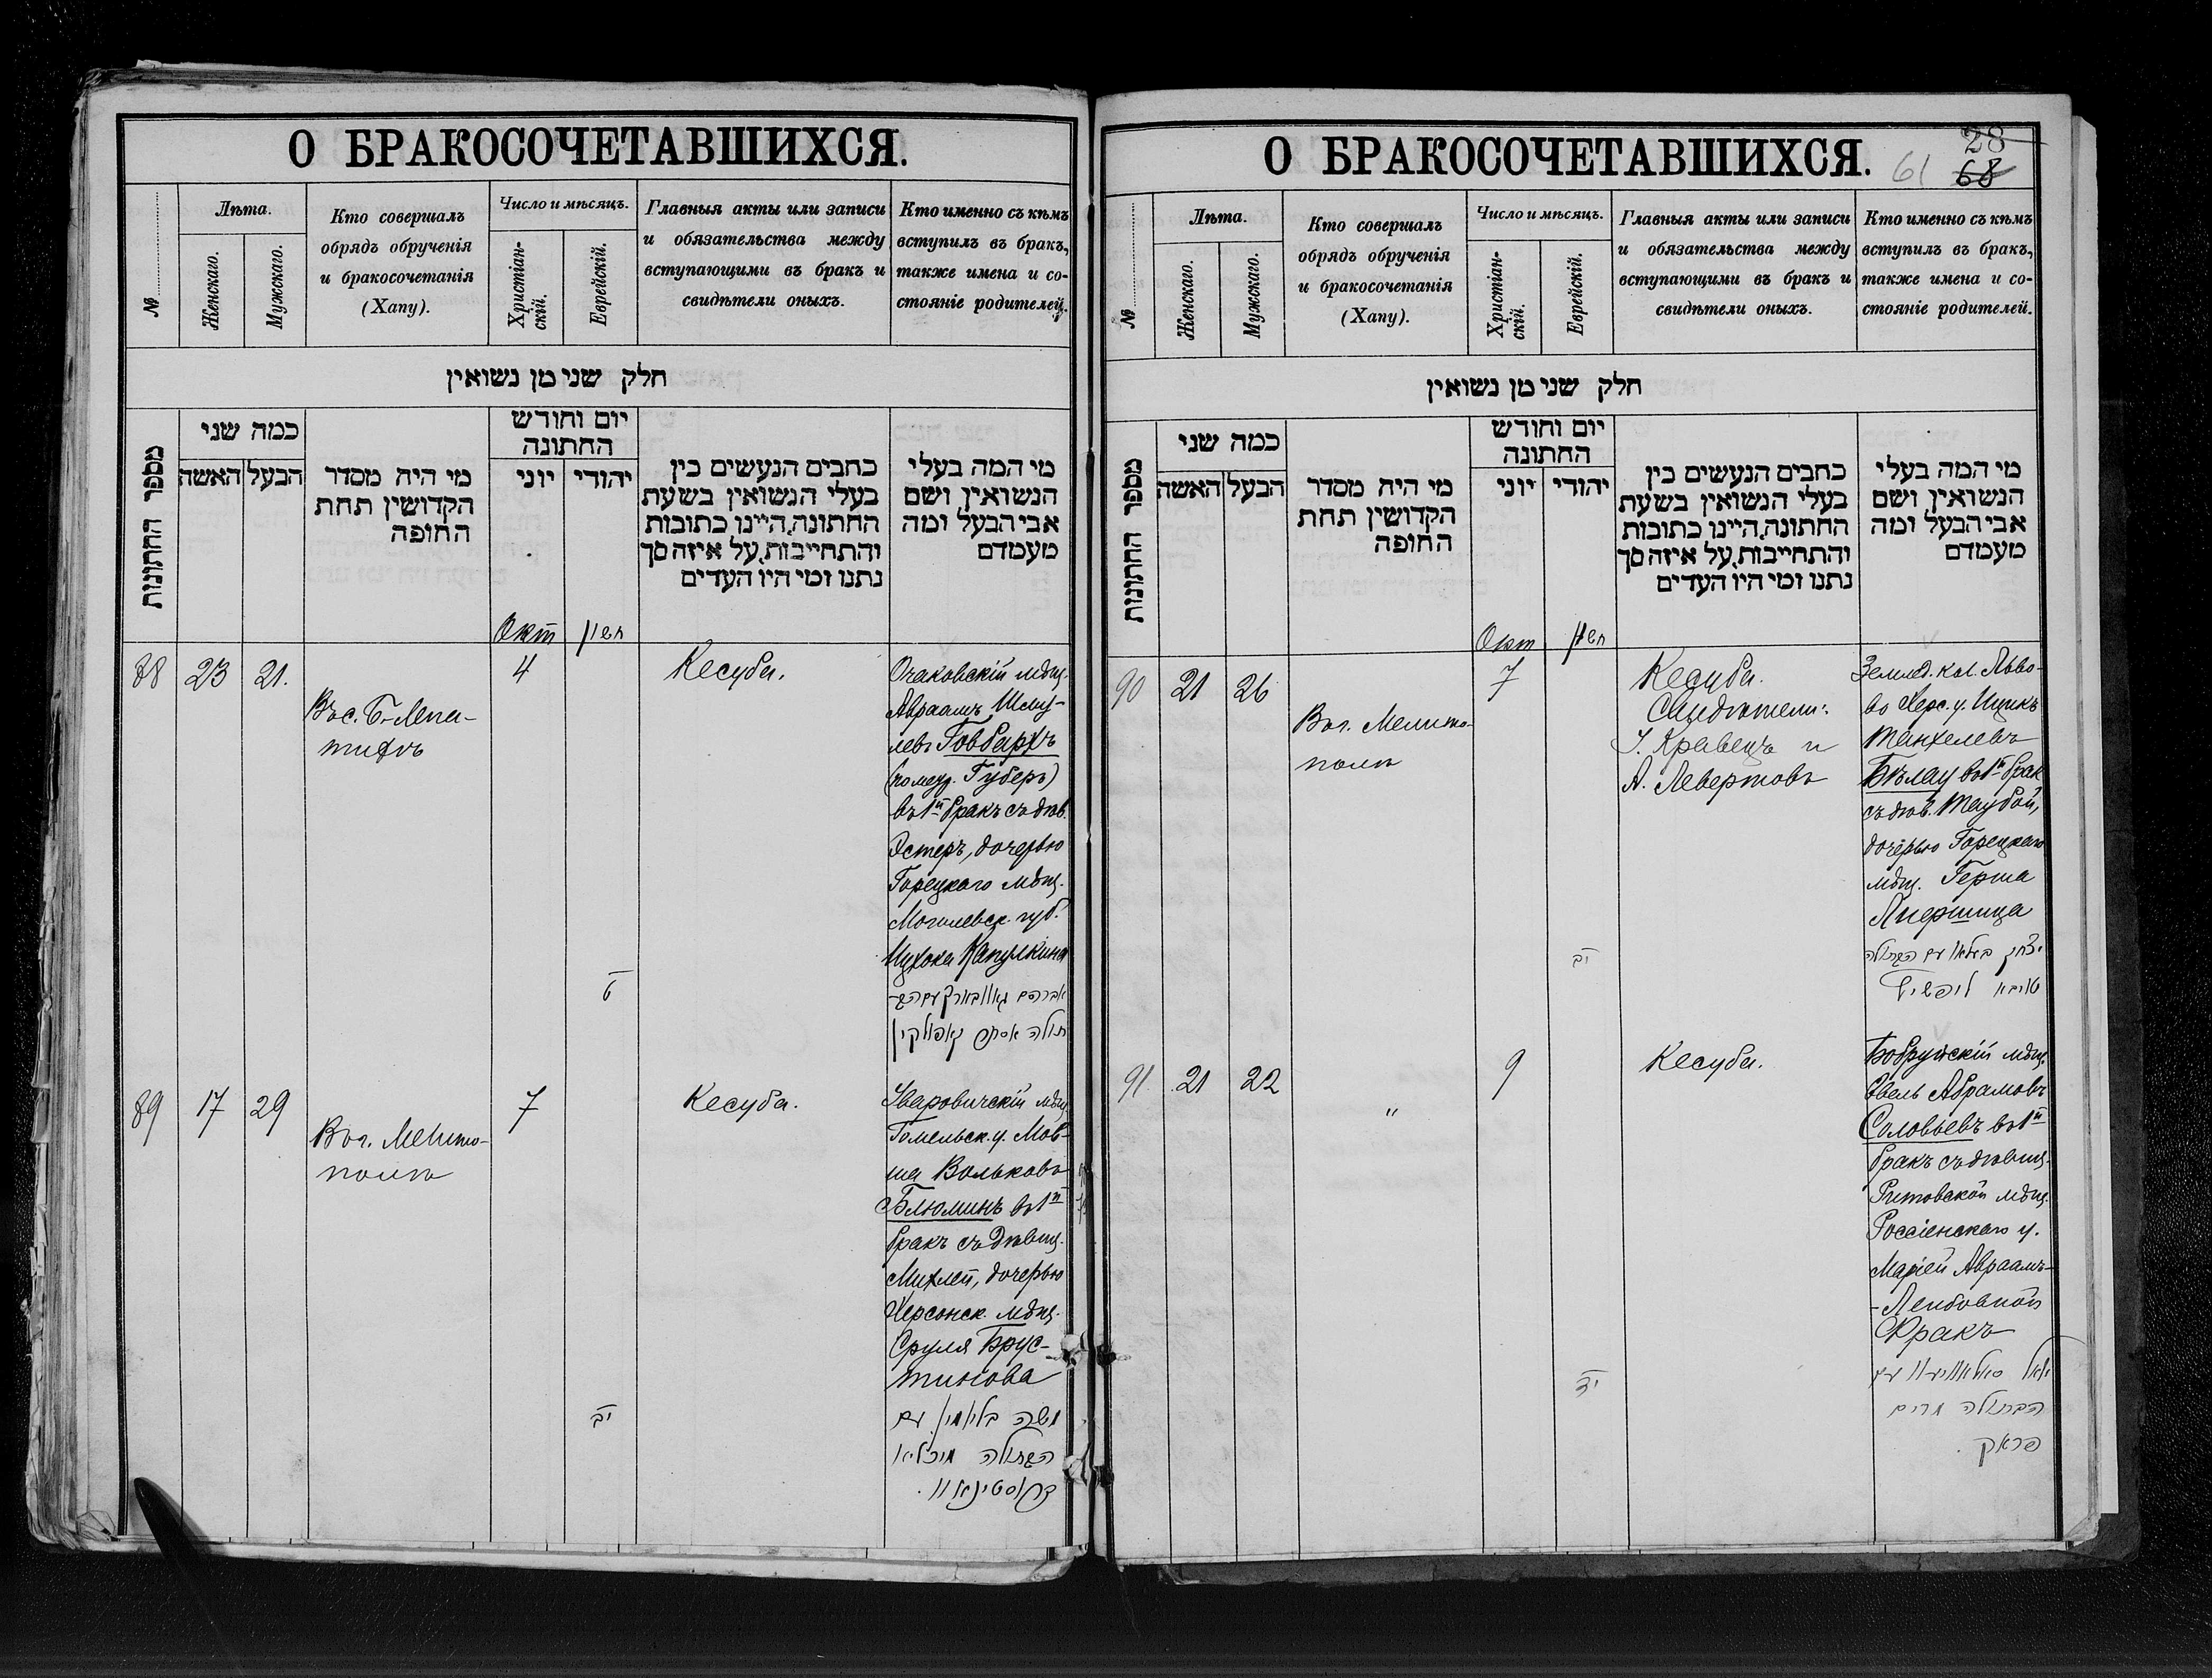 О БРАКОСОЧЕТАВШИХСЯ.
№
Лѣта.
Женскаго.
Мужскаго.
Кто совершалъ
обрядъ обрученія
и бракосочетанія
(Хапу).
Число и мѣсяцъ.
Христіан-
скій.
Еврейскій.
Главныя акты или записи
и обязательства между
вступающими въ бракъ и
свидѣтели оныхъ.
Кто именно съ кѣмъ
вступилъ въ бракъ,
также имена и со-
стояніе родителей.
חלק שני מן נשואין
מספר החתונות
כמה שני
האשה
הבעל
מי היה מסדר
הקדושין תחת
החופה
יום וחודש
החתונה
יוני
יהודי
כתבים הנעשים בין
בעלי הנשואין בשעת
החתונה, היינו כתובות
והתחייבות, על איזה סך
נתנו ומי היו העדים
מי המה בעלי
הנשואין ושם
אבי הבעל ומה
מעמדם
Окт
חשון
88
23
21.
4
ט
Кесуба.
Очаковскій мѣщ.
Авраамъ Шму-
левъ Говбархъ
Губеръ)
въ 1й бракъ съ дѣв.
Эстеръ, дочерью
Горецкаго мѣщ.
Могилевск. губ.
Ицхока Капулкина
אברהם גאווברך עם הב-
תולה אסתר קאפולקין
89
17
29
Воз. Мелито-
полъ
7
יב
Кесуба.
Уваровичскій мѣщ.
Гомельск. у. Мов-
ша Вольковъ
Блюминъ въ 1й
бракъ съ дѣвиц.
Михлей, дочерью
Херсонск. мѣщ.
Сруля Брус-
тинова
משה בליומין עם
הבתולה מיכליא
ברוסטינאוו.
О БРАКОСОЧЕТАВШИХСЯ.
28
61
68
№
Лѣта.
Женскаго.
Мужскаго.
Кто совершалъ
обрядъ обрученія
и бракосочетанія
(Хапу).
Число и мѣсяцъ.
Христіан-
скій.
Еврейскій.
Главныя акты или записи
и обязательства между
вступающими въ бракъ и
свидѣтели оныхъ.
Кто именно съ кѣмъ
вступилъ въ бракъ,
также имена и со-
стояніе родителей.
חלק שני מן נשואין
מספר החתונות
כמה שני
האשה
הבעל
מי היה מסדר
הקדושין תחת
החופה
יום וחודש
החתונה
יוני
יהודי
כתבים הנעשים בין
בעלי הנשואין בשעת
החתונה, היינו כתובות
והתחייבות, על איזה סך
נתנו ומי היו העדים
מי המה בעלי
הנשואין ושם
אבי הבעל ומה
מעמדם
Окт
חשון
90
21
26
Воз. Мелито-
полъ
7
יב
Кесуба.
Свидѣтели:
Кравецъ и
А. Левертовъ
Землед. кол. Льво-
во Херс. у. Ицикъ
Танхелевъ
Бѣлау въ 1й брак
съ дѣв. Таубой,
дочерью Горецкаго
мѣщ. Герша
Лифшица
יצחק בעלאו עם הבתולה
טויבא ליפשיץ
91
21
22
"
9
יד
Кесуба.
Бобруйскій мѣщ.
Евель Абрамовъ
Соловьевъ въ 1й
бракъ съ дѣвиц.
Ритовской мѣщ.
Россіенскаго у.
Маріей Авраамъ-
-Лейбовной
Фракъ
יואל סאלאוויעוו עם
הבתולה מרים
פראק.